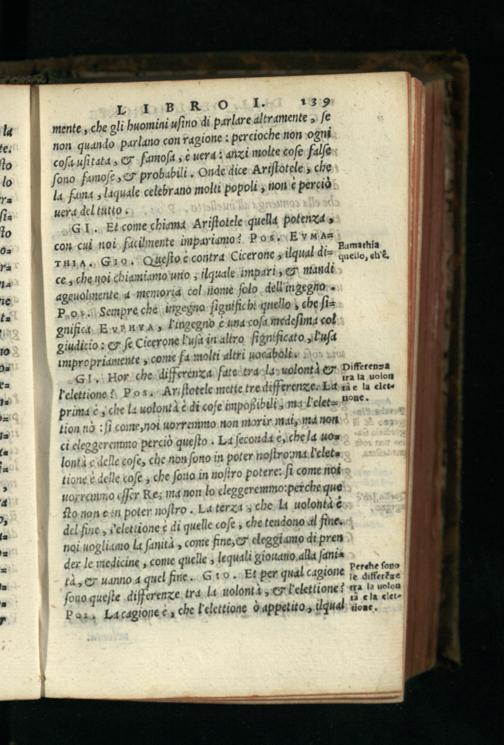 LIBRO I. 139
mente, che gli huomini usino di parlare altramente, se
non quando parlano con ragione: percioche non ogni
cosa usitata, & famosa, è uera: anzi molte cose false
sono famose, & probabili. Onde dice Aristotele, che
la fama, laquale celebrano molti popoli, non è perciò
uera del tutto.
GI. Et come chiama Aristotele quella potenza,
con cui noi facilmente impariamo? POS. EVMA-
THIA. GIO. Questo è contra Cicerone, ilqual di-
ce, che noi chiamiamo uno, ilquale impari, & mandi
ageuolmente a memoria col nome solo dell'ingegno.
POS. Sempre che ingegno significhi quello, che si-
gnifica EVPHVA, l'ingegno è una cosa medesima col
giudicio: & se Cicerone l'usa in altro significato, l'usa
impropriamente, come fa molti altri uocaboli.
GI. Hor che differenza fate tra la uolontà &
l'elettione? POS. Aristotele mette tre differenze. La
prima è, che la uolontà è di cose impoßibili, ma l'elet-
tion nò: si come, noi uorremmo non morir mai, ma non
ci eleggeremmo perciò questo. La seconda è, che la uo-
lontà è delle cose, che non sono in poter nostro: ma l'elet-
tione è delle cose, che sono in nostro potere: si come noi
uorremmo esser Re; ma non lo eleggeremmo: perche que
sto non è in poter nostro. La terza, che la uolontà è
del fine, l'elettione è di quelle cose, che tendono al fine.
noi uogliamo la sanità, come fine, & eleggiamo di pren
der le medicine, come quelle, lequali giouano alla sani-
tà, & uanno a quel fine. GIO. Et per qual cagione
sono queste differenze tra la uolontà, & l'elettione?
POS. La cagione è, che l'elettione ò appetito, ilqual
Eumathia
quello, ch'è.
Differenza
tra la uolon
tà e la elet-
tione.
Perche sono
le differẽze
tra la uolon
tà e la elet-
tione.